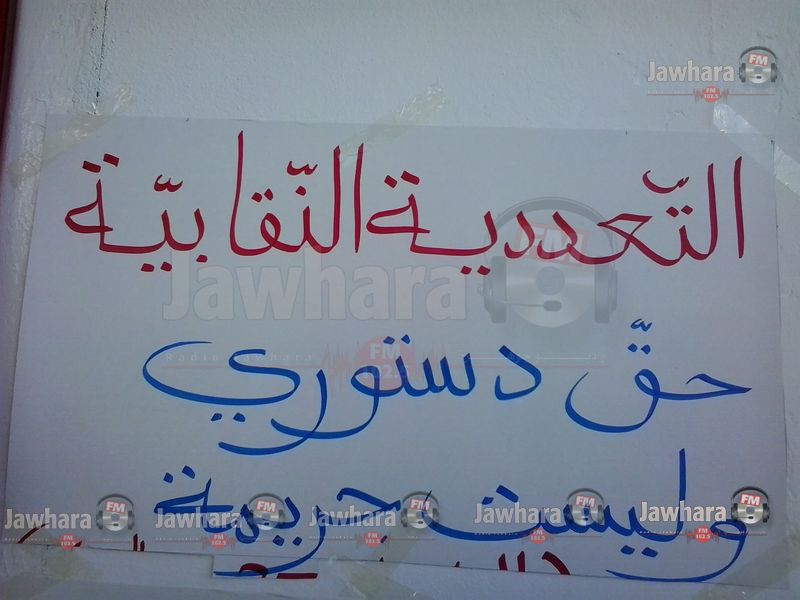 Jawhara FM
102.5
التّعددية النّقابيّة
Jawhara FM
Radio Jawhara
102.5
حقّ دستوري
وليست جريمة
Jawhara FM 102.5
Jawhara FM 102.5
Jawhara FM 102.5
Jawhara FM 102.5
Jawhara FM 102.5